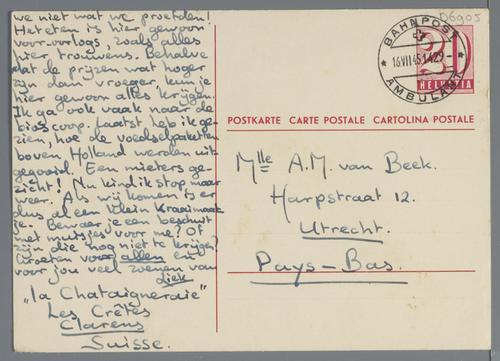 we niet wat we proefden!
Het eten is hier gewoon
voor-oorlogs, zoals alles
hier trouwens. Behalve
dat de prijzen wat hoger
zijn dan vroeger, kun je
hier gewoon alles krijgen.
Ik ga ook vaak naar de
bioscoop. Laatst heb ik ge-
zien, hoe de voedselpaketten
boven Holland werden uit-
gegooid. Een mieters ge-
zicht! Nu kind ik stop maar
weer. Als wij komen is er
dus al een klein Kraaimaat
je. Bewaar je een beschuit
met muisjes voor me? Of
zijn die nog niet te krijgen?
Groeten voor allen en
voor jou veel zoenen van
Liek
"la Chataigneraie"
Les Crêtes
Clarens
Suisse.
D6905
BAHNPOST
16.VII.45.1429
AMBULANT
HELVETIA
POSTKARTE CARTE POSTALE CARTOLINA POSTALE
Mlle A.M. van Beek.
Harpstraat 12.
Utrecht.
Pays-Bas.